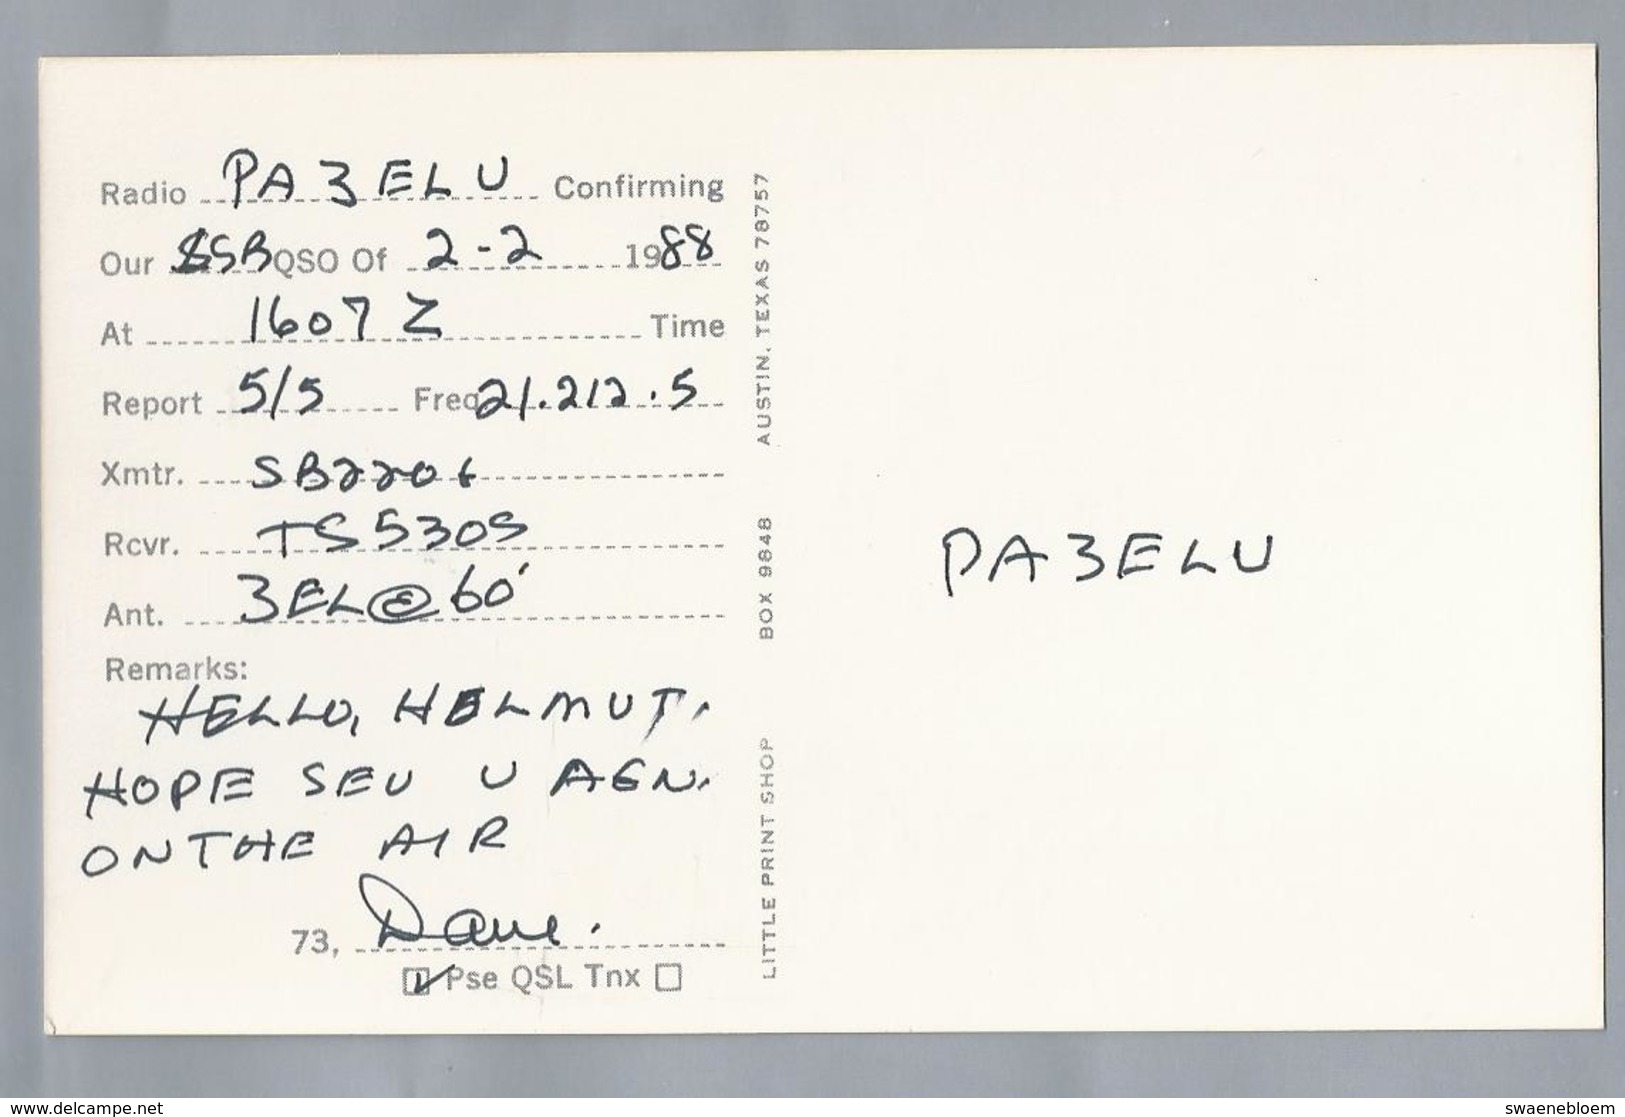 Radio PA3ELU Confirming
Our SSB QSO Of 2-2 1988
At 1607 Z Time
Report 5/5 Freq 21.212.5
Xmtr. SB220
Rcvr. TS530S
Ant. 3EL@60'
Remarks:
HELLO, HELMUT.
HOPE SEU U AGN.
ON THE AIR
73, Dave.
Pse QSL Tnx
LITTLE PRINT SHOP BOX 9848 AUSTIN, TEXAS 78757
PA3ELU
www.delcampe.net
swaenebloem